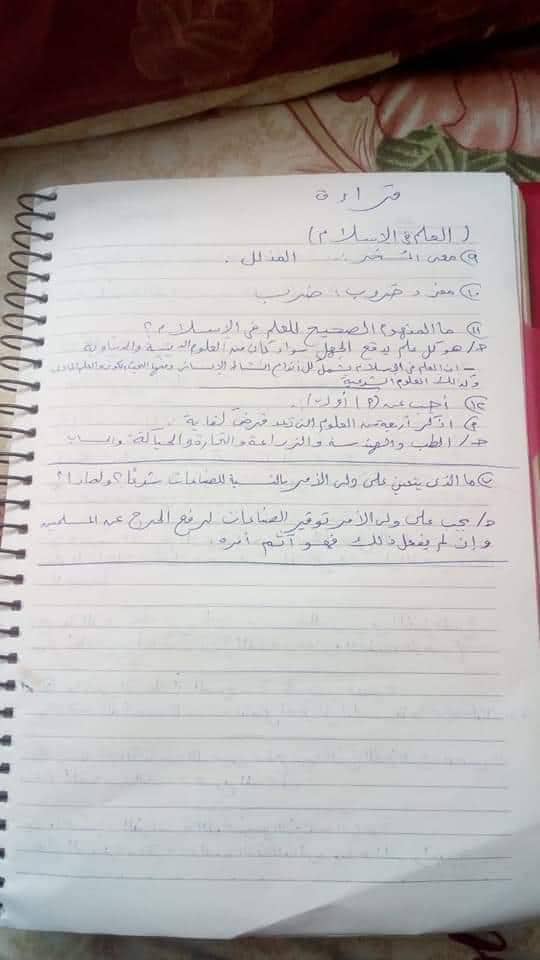 قراءة
(العلم في الاسلام)
٩ معنى المسخر : المذلل .
١٠ مفرد ضروب : ضرب
١١ ما المفهوم الصحيح للعلم في الاسلام ؟
جـ/ هو كل علم يدفع الجهل سواء كان من العلوم الدينية والدنياوية
- ان العلم في الاسلام يشمل كل أنواع النشاط الإنساني ومنها
وكذلك العلوم الشرعية
١٢ أجب عن (أ أو ب) :
أ اذكر أربعة من العلوم التي تعد فرض كفاية .
جـ/ الطب والهندسة والزراعة والتجارة والحياكة والحساب
ب ما الذى يتعين على ولى الأمر بالنسبة للصناعات شرعًا ؟ ولماذا ؟
جـ/ يجب على ولى الأمر توفير الصناعات لرفع الحرج عن المسلمين
وإن لم يفعل ذلك فهو آثم أمره .